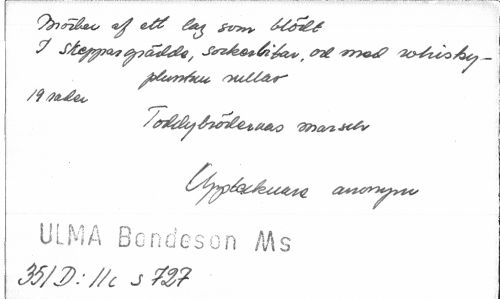 Bröder af ett lag som blödt
I skeppargrädda, sockerbitar, och med whisky-
pluntan rullar
19 rader
Toddybrödernas marsch
Upptecknare anonym
ULMA Bondeson Ms
351 D: 11c s 727